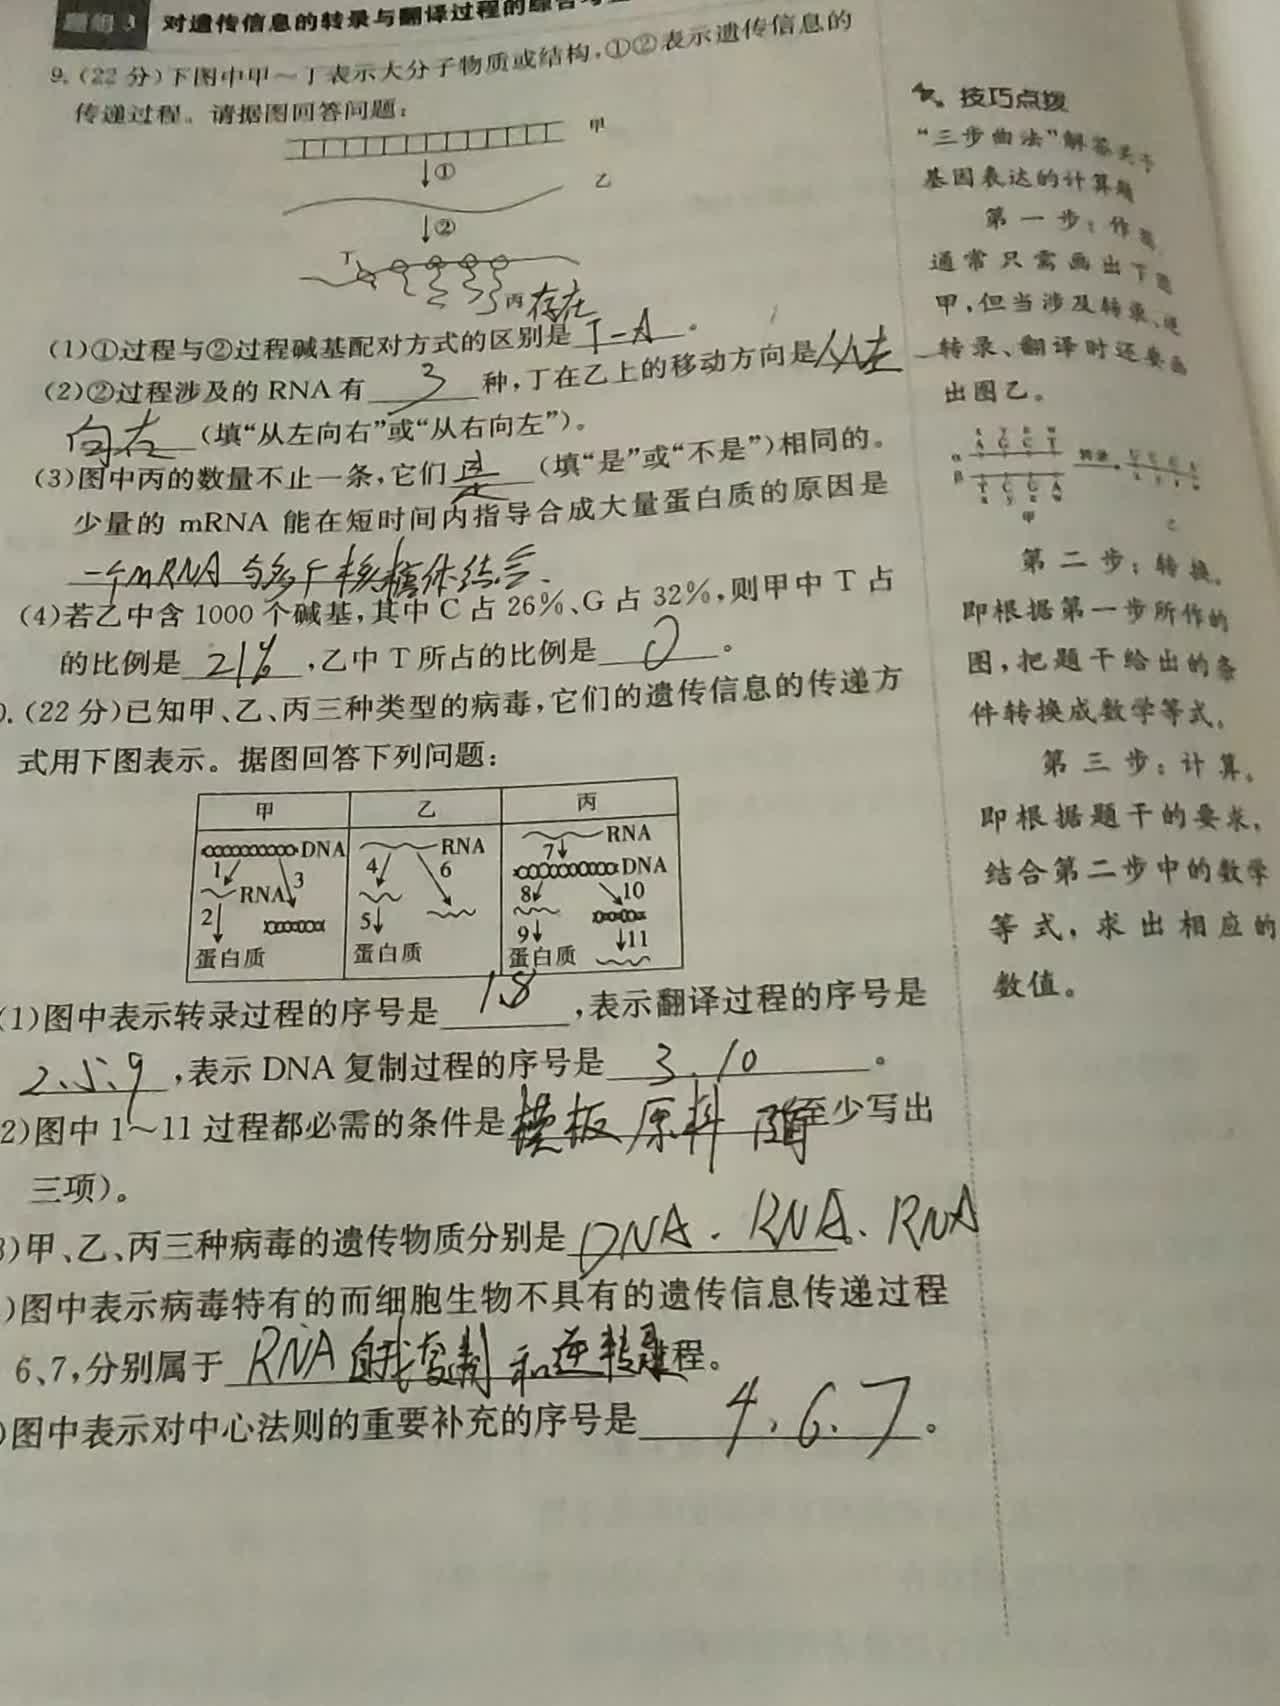 题组3 对遗传信息的转录与翻译过程的综合考查
9.(22分)下图中甲~丁表示大分子物质或结构,①②表示遗传信息的
传递过程。请据图回答问题:
甲
①
乙
②
丁
丙
(1)①过程与②过程碱基配对方式的区别是存在T-A。
(2)②过程涉及的RNA有3种,丁在乙上的移动方向是从左
向右(填“从左向右”或“从右向左”)。
(3)图中丙的数量不止一条,它们是(填“是”或“不是”)相同的。
少量的mRNA能在短时间内指导合成大量蛋白质的原因是
一个mRNA与多个核糖体结合.
(4)若乙中含1000个碱基,其中C占26%、G占32%,则甲中T占
的比例是21%,乙中T所占的比例是0。
0.(22分)已知甲、乙、丙三种类型的病毒,它们的遗传信息的传递方
式用下图表示。据图回答下列问题:
甲 乙 丙
DNA RNA RNA
1 3 4 6 7 DNA
RNA 8 10
2 5 9 11
蛋白质 蛋白质 蛋白质
(1)图中表示转录过程的序号是1.8,表示翻译过程的序号是
2、5、9,表示DNA复制过程的序号是3.10。
2)图中1~11过程都必需的条件是模板 原料 至少写出
三项)。
3)甲、乙、丙三种病毒的遗传物质分别是DNA.RNA、RNA
)图中表示病毒特有的而细胞生物不具有的遗传信息传递过程
6、7,分别属于RNA自我复制和逆转录程。
)图中表示对中心法则的重要补充的序号是4、6、7。
技巧点拨
“三步曲法”解答关于
基因表达的计算题
第一步:作图
通常只需画出下图
甲,但当涉及转录、逆
转录、翻译时还要画
出图乙。
α
β
转录
甲
乙
第二步:转换。
即根据第一步所作的
图,把题干给出的条
件转换成数学等式。
第三步:计算。
即根据题干的要求,
结合第二步中的数学
等式,求出相应的
数值。